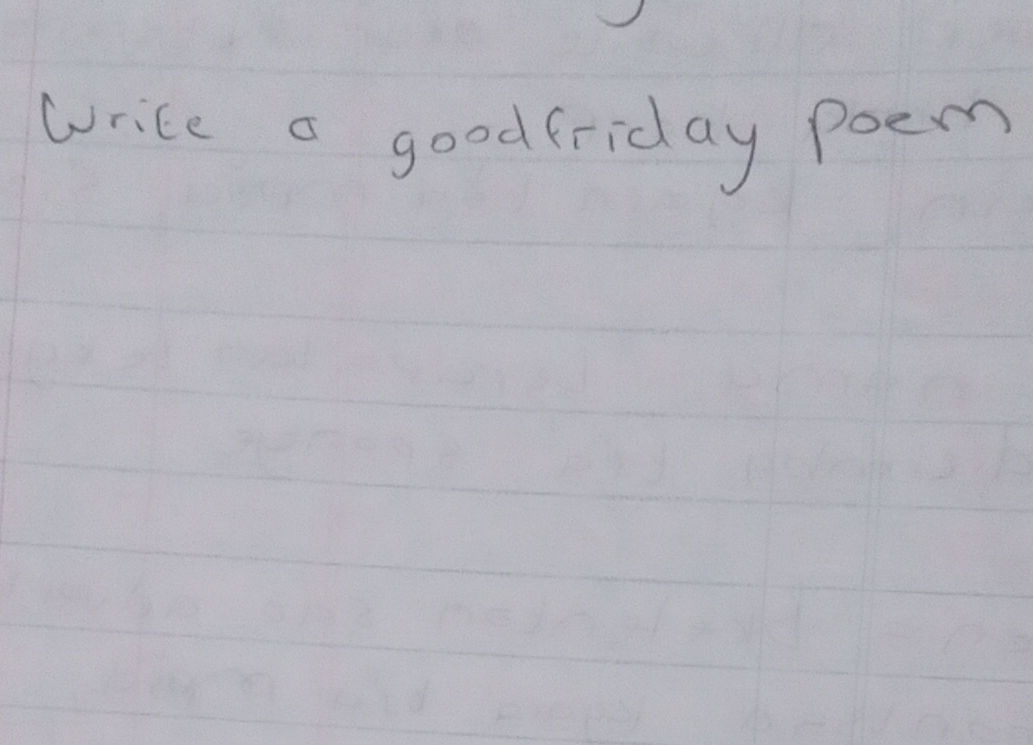 Write a goodfriday poem